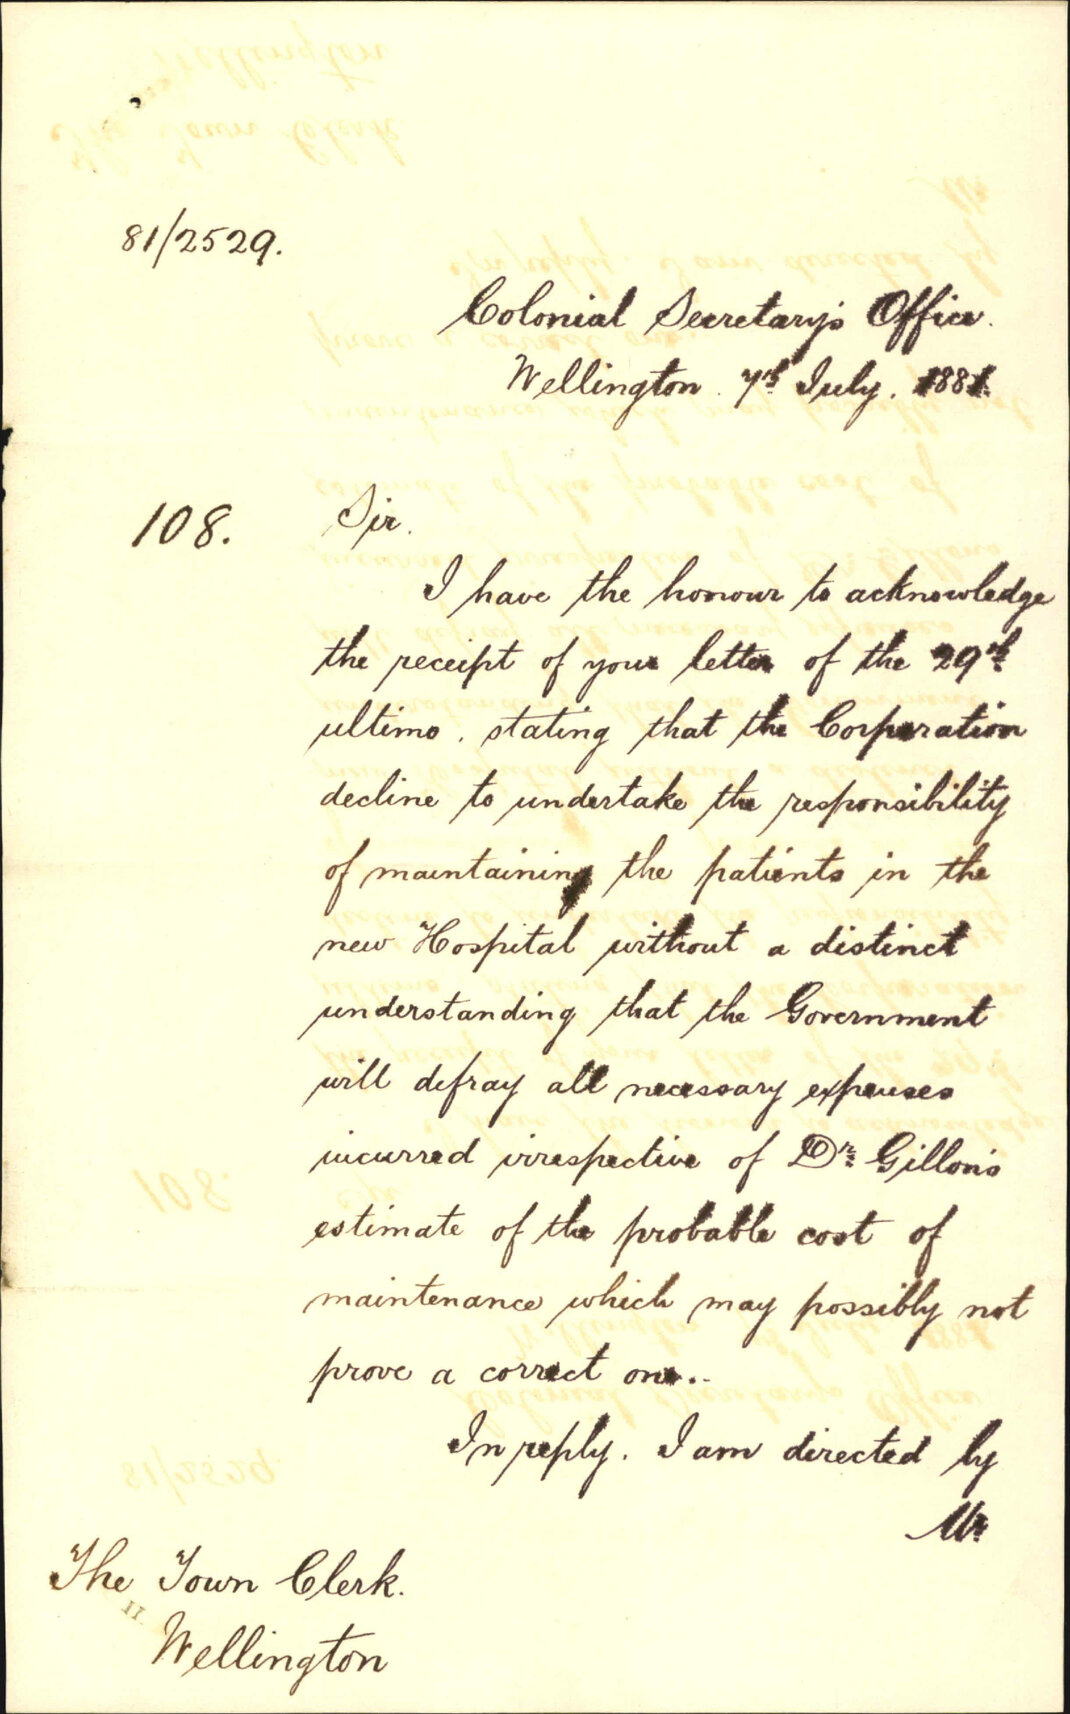 81/2529.
Colonial Secretary's Office.
Wellington. 7th July. 1881.
108.
Sir.
I have the honour to acknowledge
the receipt of your letter of the 29th
ultimo, stating that the Corporation
decline to undertake the responsibility
of maintaining the patients in the
new Hospital without a distinct
understanding that the Government
will defray all necessary expenses
incurred irrespective of Dr. Gillon's
estimate of the probable cost of
maintenance which may possibly not
prove a correct one..
In reply. I am directed by
Mr
The Town Clerk.
"
Wellington